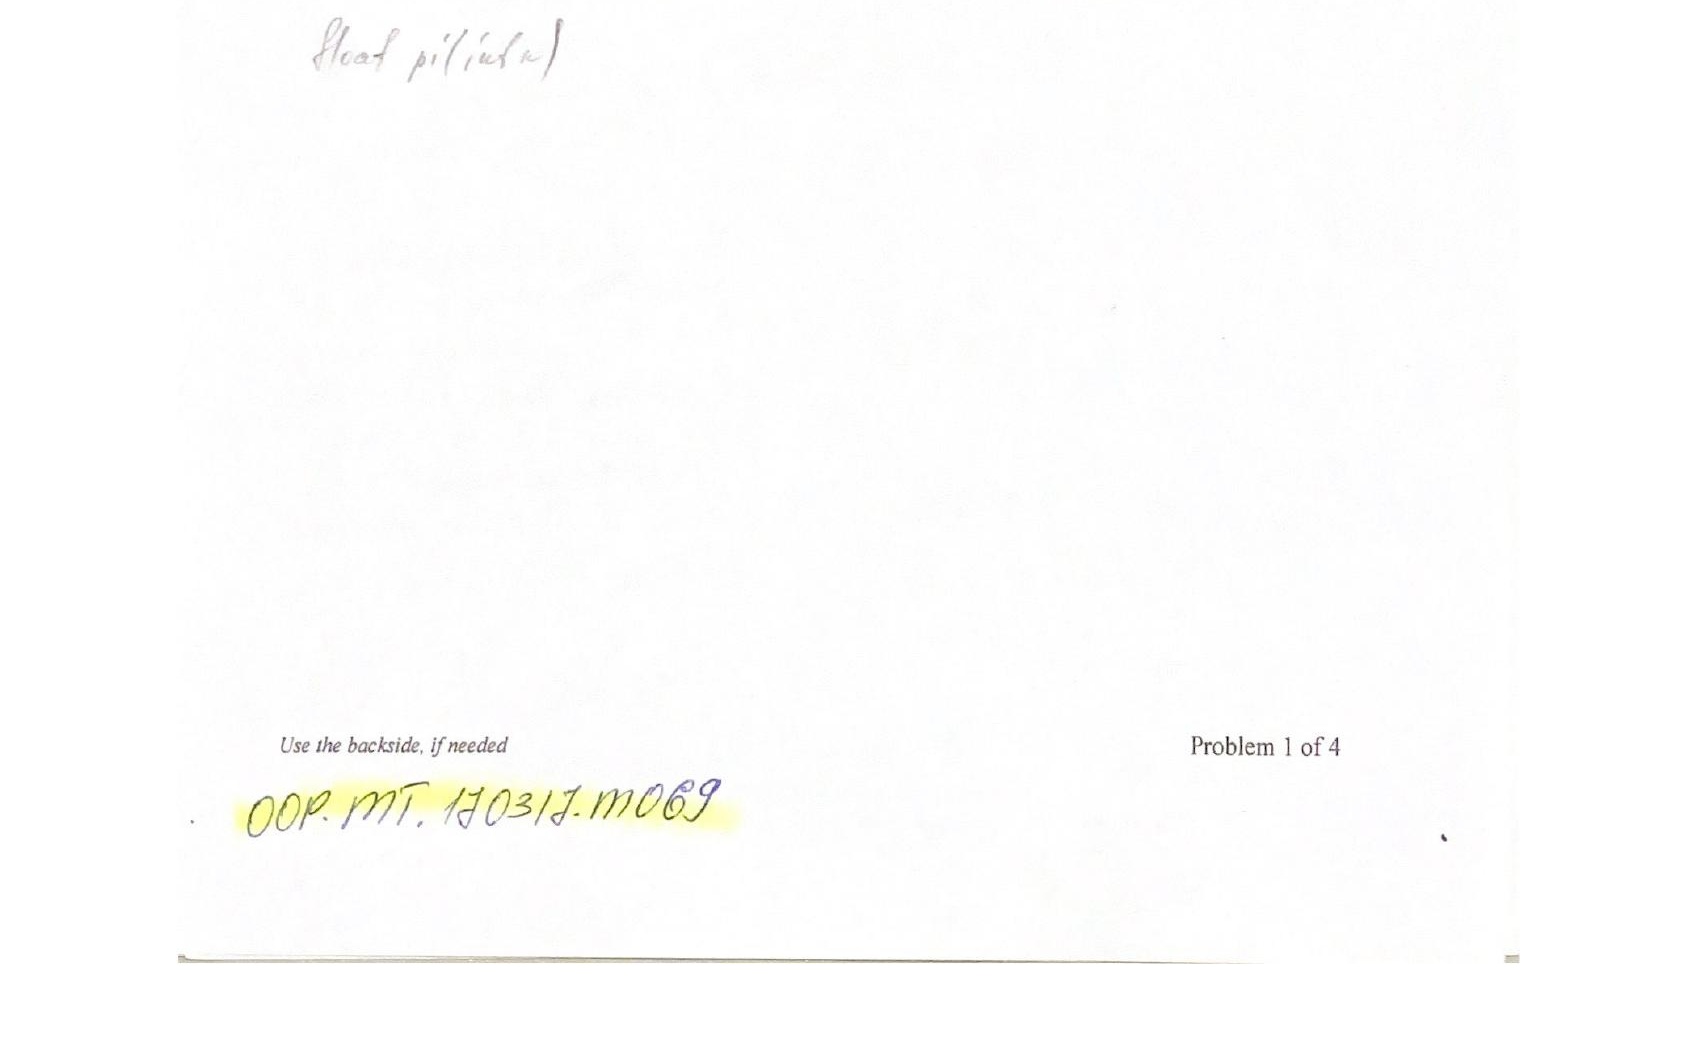 float pi(int n)
Use the backside, if needed
Problem 1 of 4
OOP.MT.170317.M069